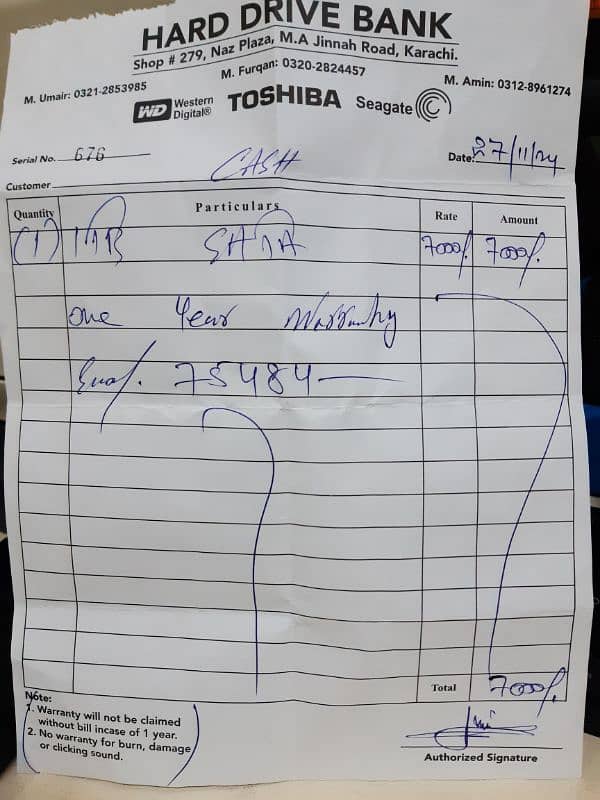 HARD DRIVE BANK
Shop # 279, Naz Plaza, M.A Jinnah Road, Karachi.
M. Umair: 0321-2853985 M. Furqan: 0320-2824457 M. Amin: 0312-8961274
WD Western Digital® TOSHIBA Seagate
Serial No. 676 CASH Date: 27/11/24
Customer
Quantity Particulars Rate Amount
(1) 1TB SATA 7000/. 7000/.
one Year Warranty
75484
Total 7000/.
Note:
1. Warranty will not be claimed
without bill incase of 1 year.
2. No warranty for burn, damage
or clicking sound.
Authorized Signature